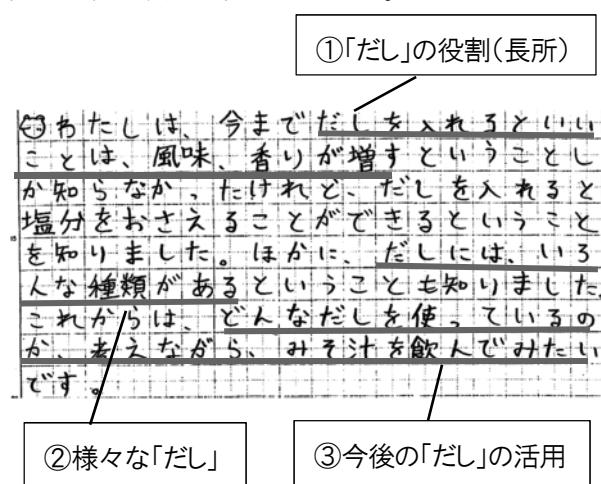 ①「だし」の役割(長所)
わたしは、今までだしを入れるといい
ことは、風味、香りが増すということし
か知らなかったけれど、だしを入れると
塩分をおさえることができるということ
を知りました。ほかに、だしには、いろ
んな種類があるということも知りました。
これからは、どんなだしを使っているの
か、考えながら、みそ汁を飲んでみたい
です。
②様々な「だし」
③今後の「だし」の活用